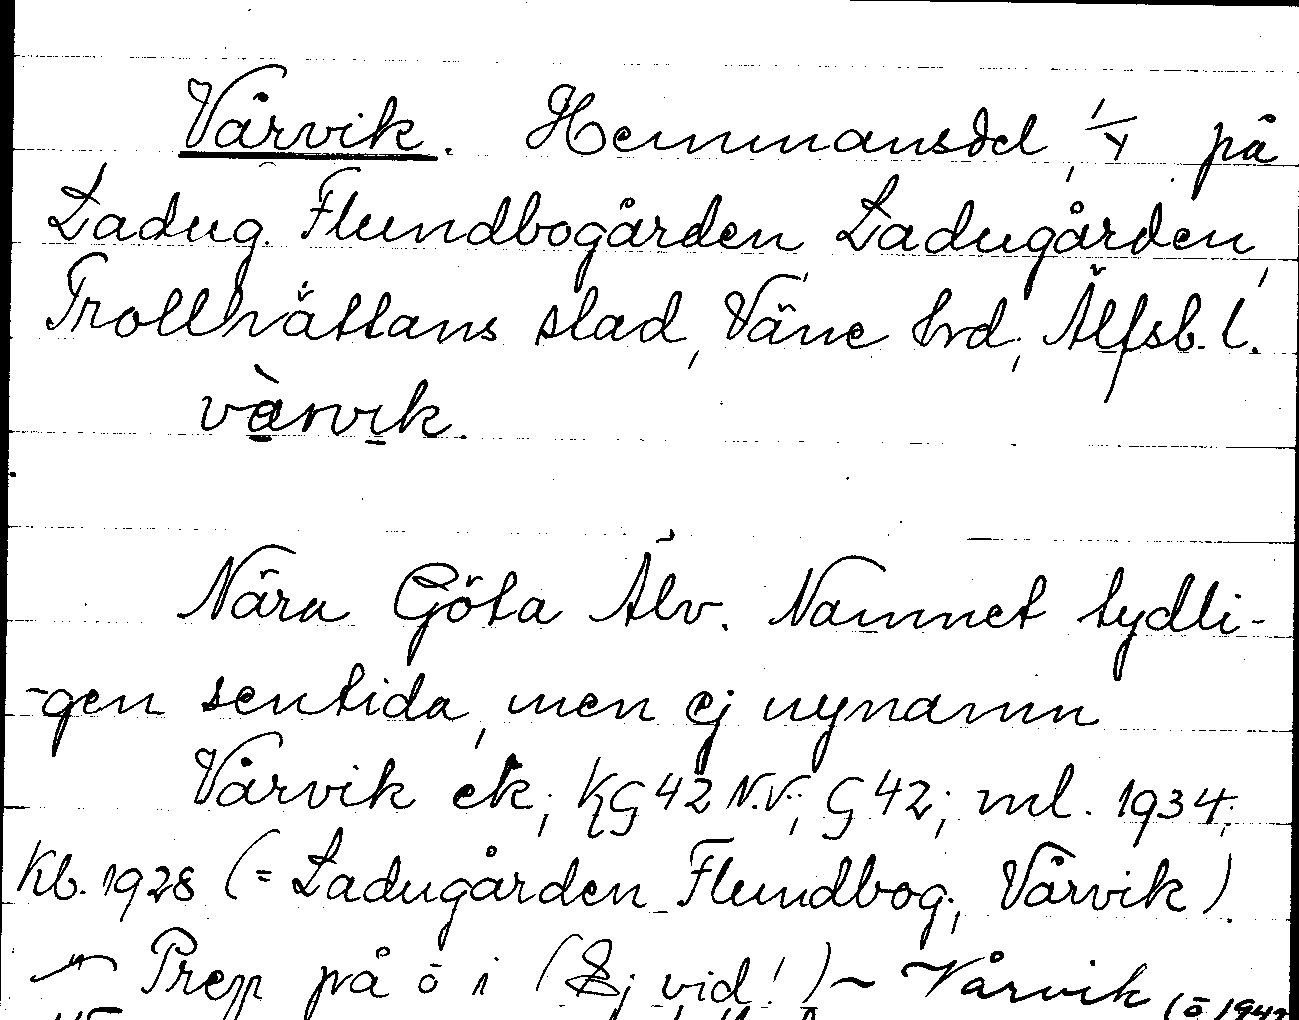 Vårvik. Hemmansdel, 1/4 på
Ladug. Flundbogården Ladugården,
Trollhättans stad, Väne hrd, Älfsb. l.
vàrvik.
Nära Göta Älv. Namnet tydli-
-gen sentida, men ej nynamn
Vårvik ek; KG 42 N.V.; G 42; ml. 1934;
Kb. 1928 (= Ladugården Flundbog., Vårvik).
Prep på o i (Ej vid!) ~ Vårvik (o 1942